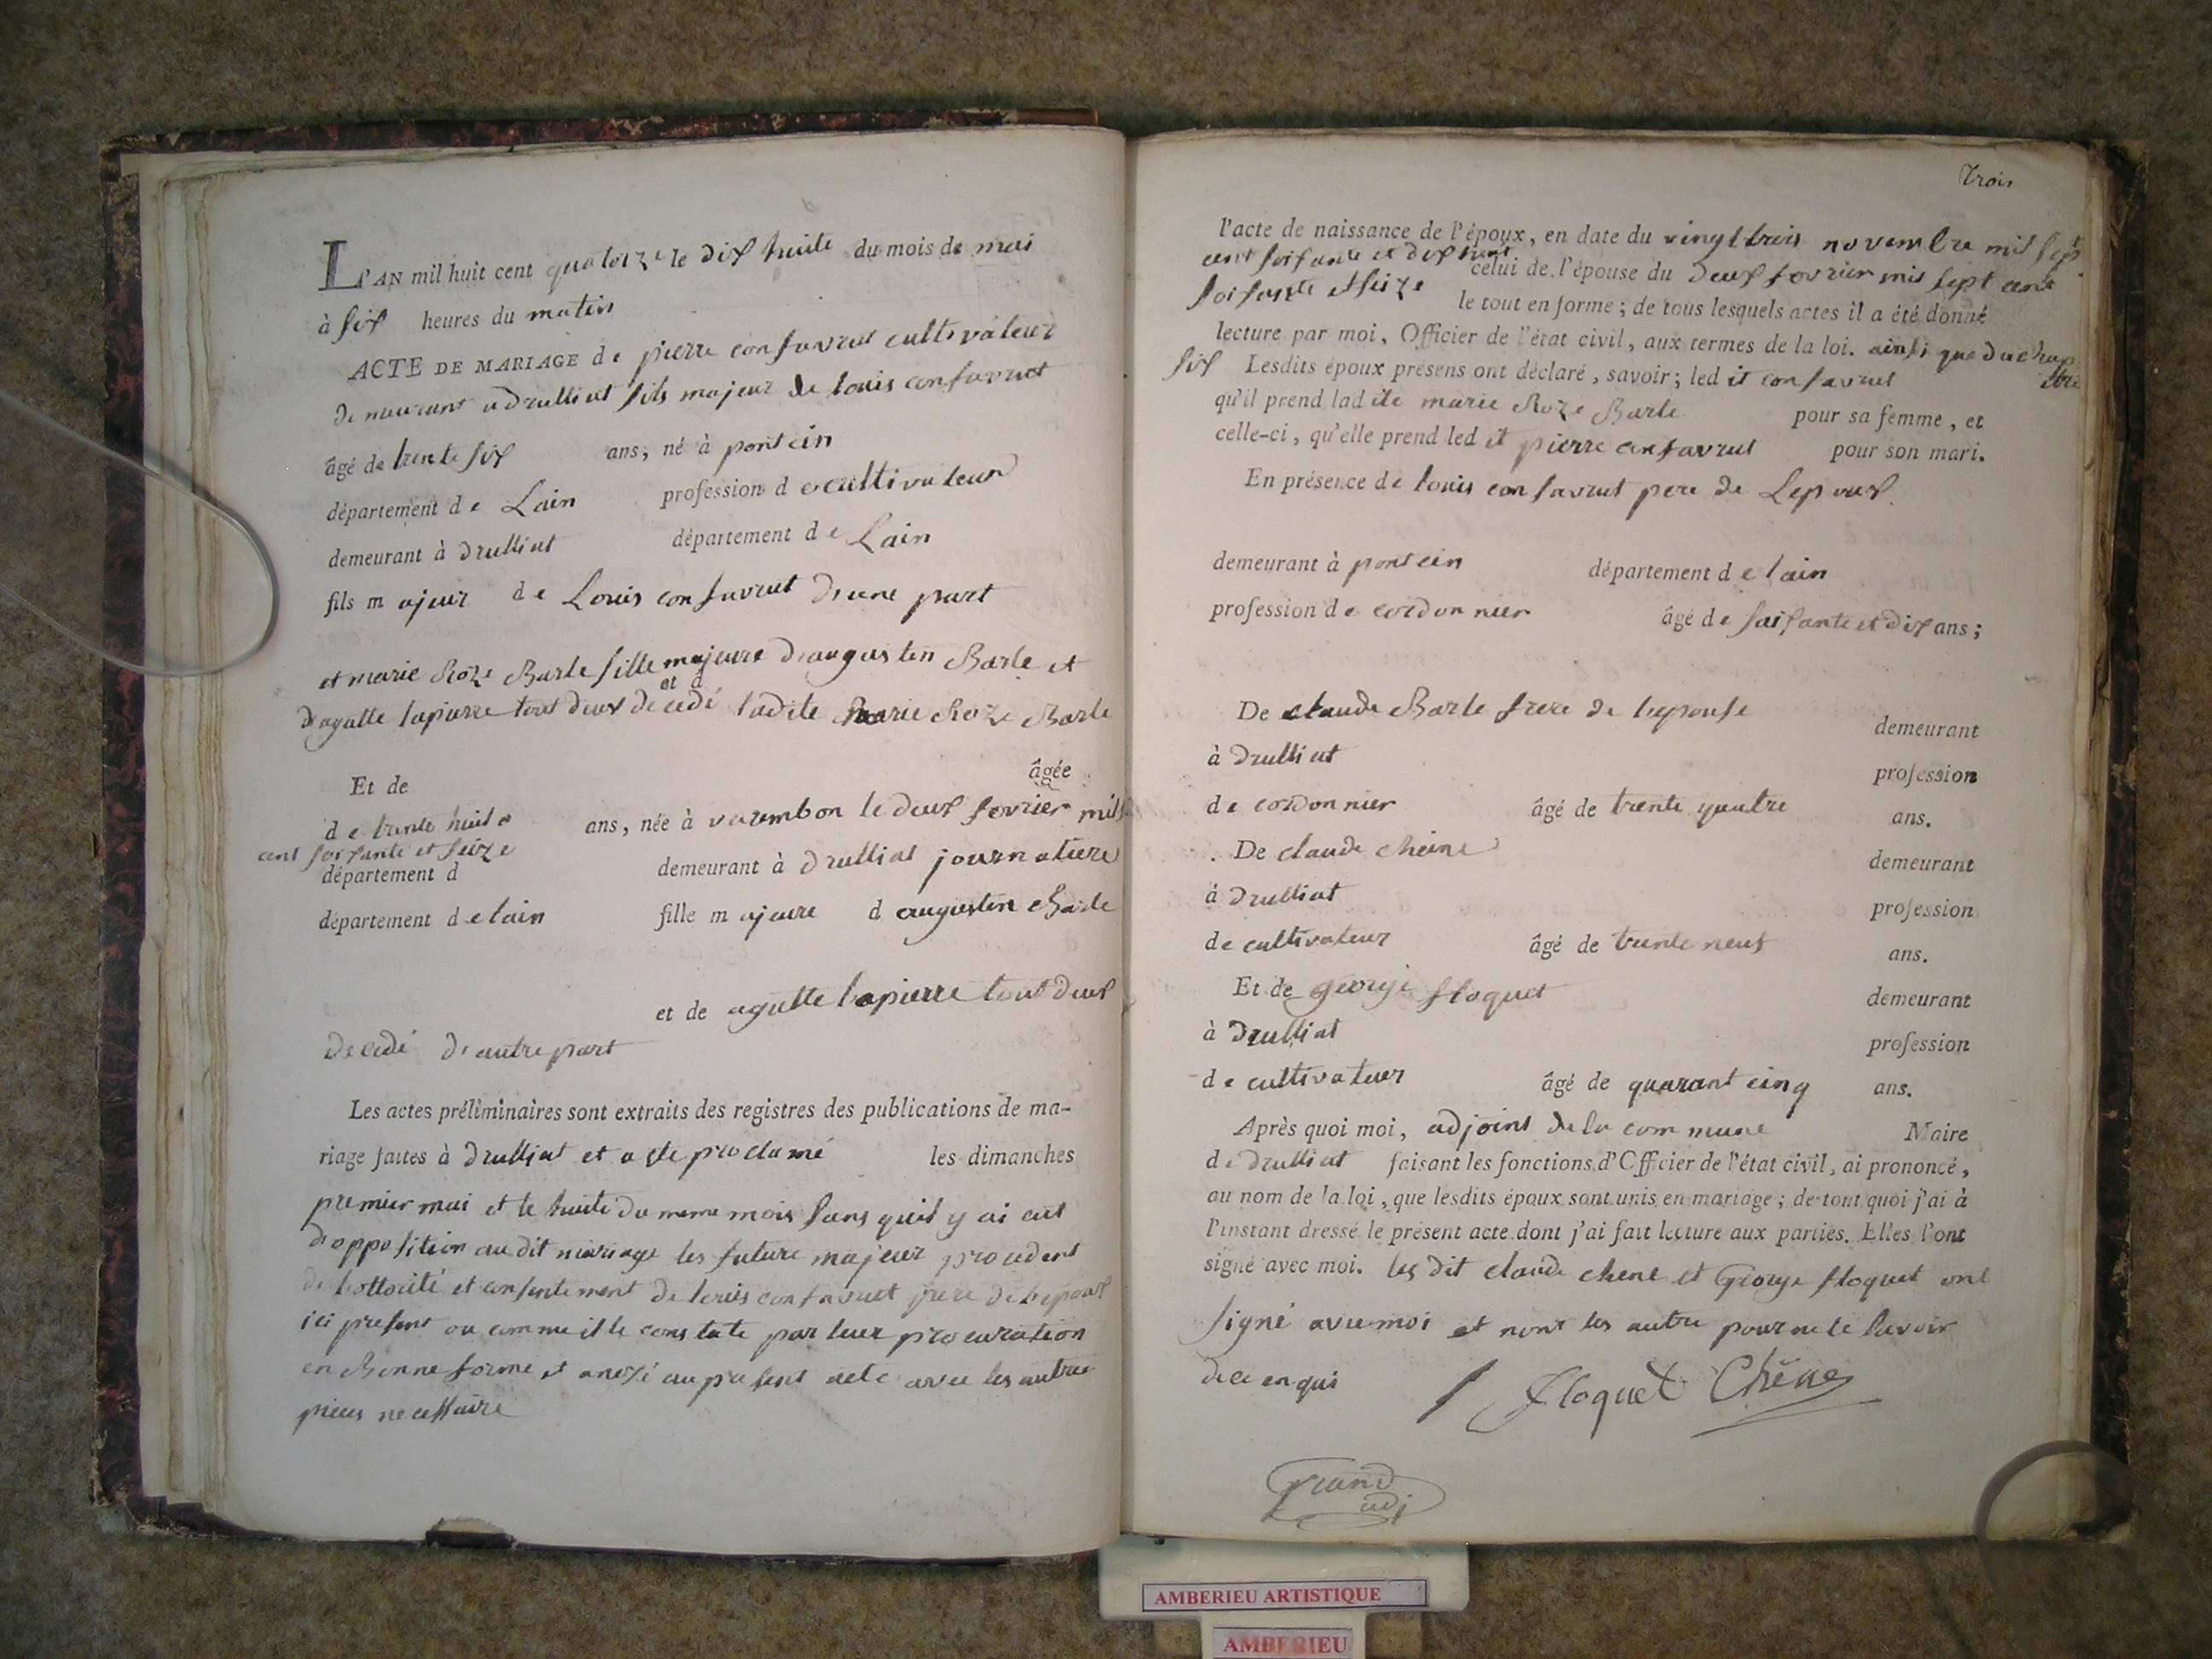 L'AN mil huit cent quatorze le dix huite du mois de mai
à six heures du matin
ACTE DE MARIAGE de pierre confavrut cultivateur
demeurant a drulliat fils majeur de louis confavrut
âgé de trente six ans, né à pontein
département de Lain profession de cultivateur
demeurant à drulliat département de Lain
fils majeur de Louis confavrut d'une part
et marie Roze Barle fille majeure d'augustin Barle et
et d
d'agatte lapierre tout deux decedé ladite Marie Roze Barle
Et de âgée
de trente huit ans, née à varembon le deux fevrier mil
cent soixante et seize
département d demeurant à drulliat journatiere
département de lain fille majeure d augustin Barle
et de agatte lapierre tout deux
decedé d'autre part
Les actes préliminaires sont extraits des registres des publications de ma-
riage faites à drulliat et a ete proclamé les dimanches
premier mai et le huite du meme mois sans quil y ai eut
d'opposition au dit mariage les future majeur procedent
de lottorité et consentement de louis confavrut pere de lepoux
ici present ou comme il le constate par leur procuration
en Bonne forme et anexé au present acte avec les autres
pieces necessaire
Trois
l'acte de naissance de l'époux, en date du vingt trois novembre mil sept
cent soixante et dix huit celui de l'épouse du deux fevrier mil sept cent
soixante et seize le tout en forme ; de tous lesquels actes il a été donné
lecture par moi, Officier de l'état civil, aux termes de la loi. ainsi que du chap
ittre
six Lesdits époux présens ont déclaré, savoir ; ledit confavrut
qu'il prend ladite marie Roze Barle pour sa femme, et
celle-ci, qu'elle prend ledit pierre confavrut pour son mari.
En présence de louis confavrut pere de Lepoux
demeurant à pontein département de lain
profession de cordonnier âgé de soixante et dix ans ;
De claude Barle frere de lepouse demeurant
à drulliat profession
de cordonnier âgé de trente quatre ans.
De claude cheine demeurant
à drulliat profession
de cultivateur âgé de trente neuf ans.
Et de george floquet demeurant
à drulliat profession
de cultivateur âgé de quarant cinq ans.
Après quoi moi, adjoint de la commune Maire
de drulliat faisant les fonctions d'Officier de l'état civil, ai prononcé,
au nom de la loi, que lesdits époux sont unis en mariage ; de tout quoi j'ai à
l'instant dressé le présent acte dont j'ai fait lecture aux parties. Elles l'ont
signé avec moi. les dit claude chene et George floquet ont
signé avec moi et nont les autre pour ne le savoir
de ce enquis floquet Chêne
Grand
adj
AMBERIEU ARTISTIQUE
AMBERIEU